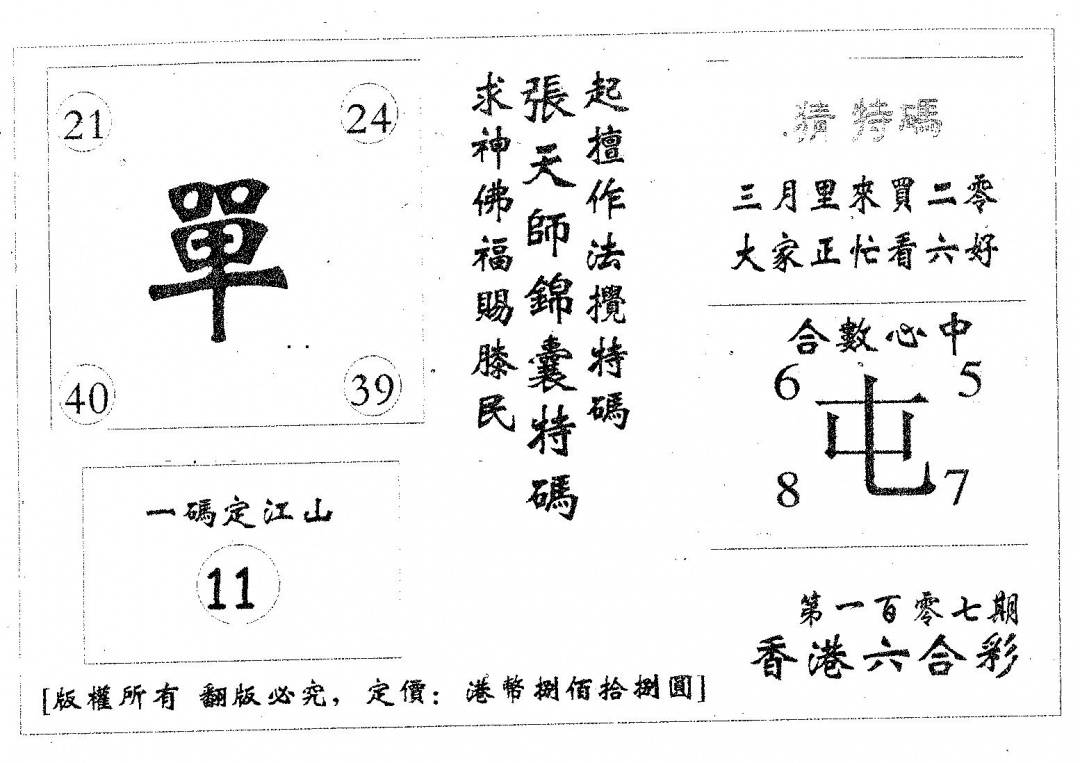 21
24
單
40
39
一碼定江山
11
起擅作法攪特碼
張天師錦囊特碼
求神佛福賜滕民
猜特碼
三月里來買二零
大家正忙看六好
合數心中
6
5
屯
8
7
第一百零七期
香港六合彩
[版權所有 翻版必究，定價：港幣捌佰拾捌圓]